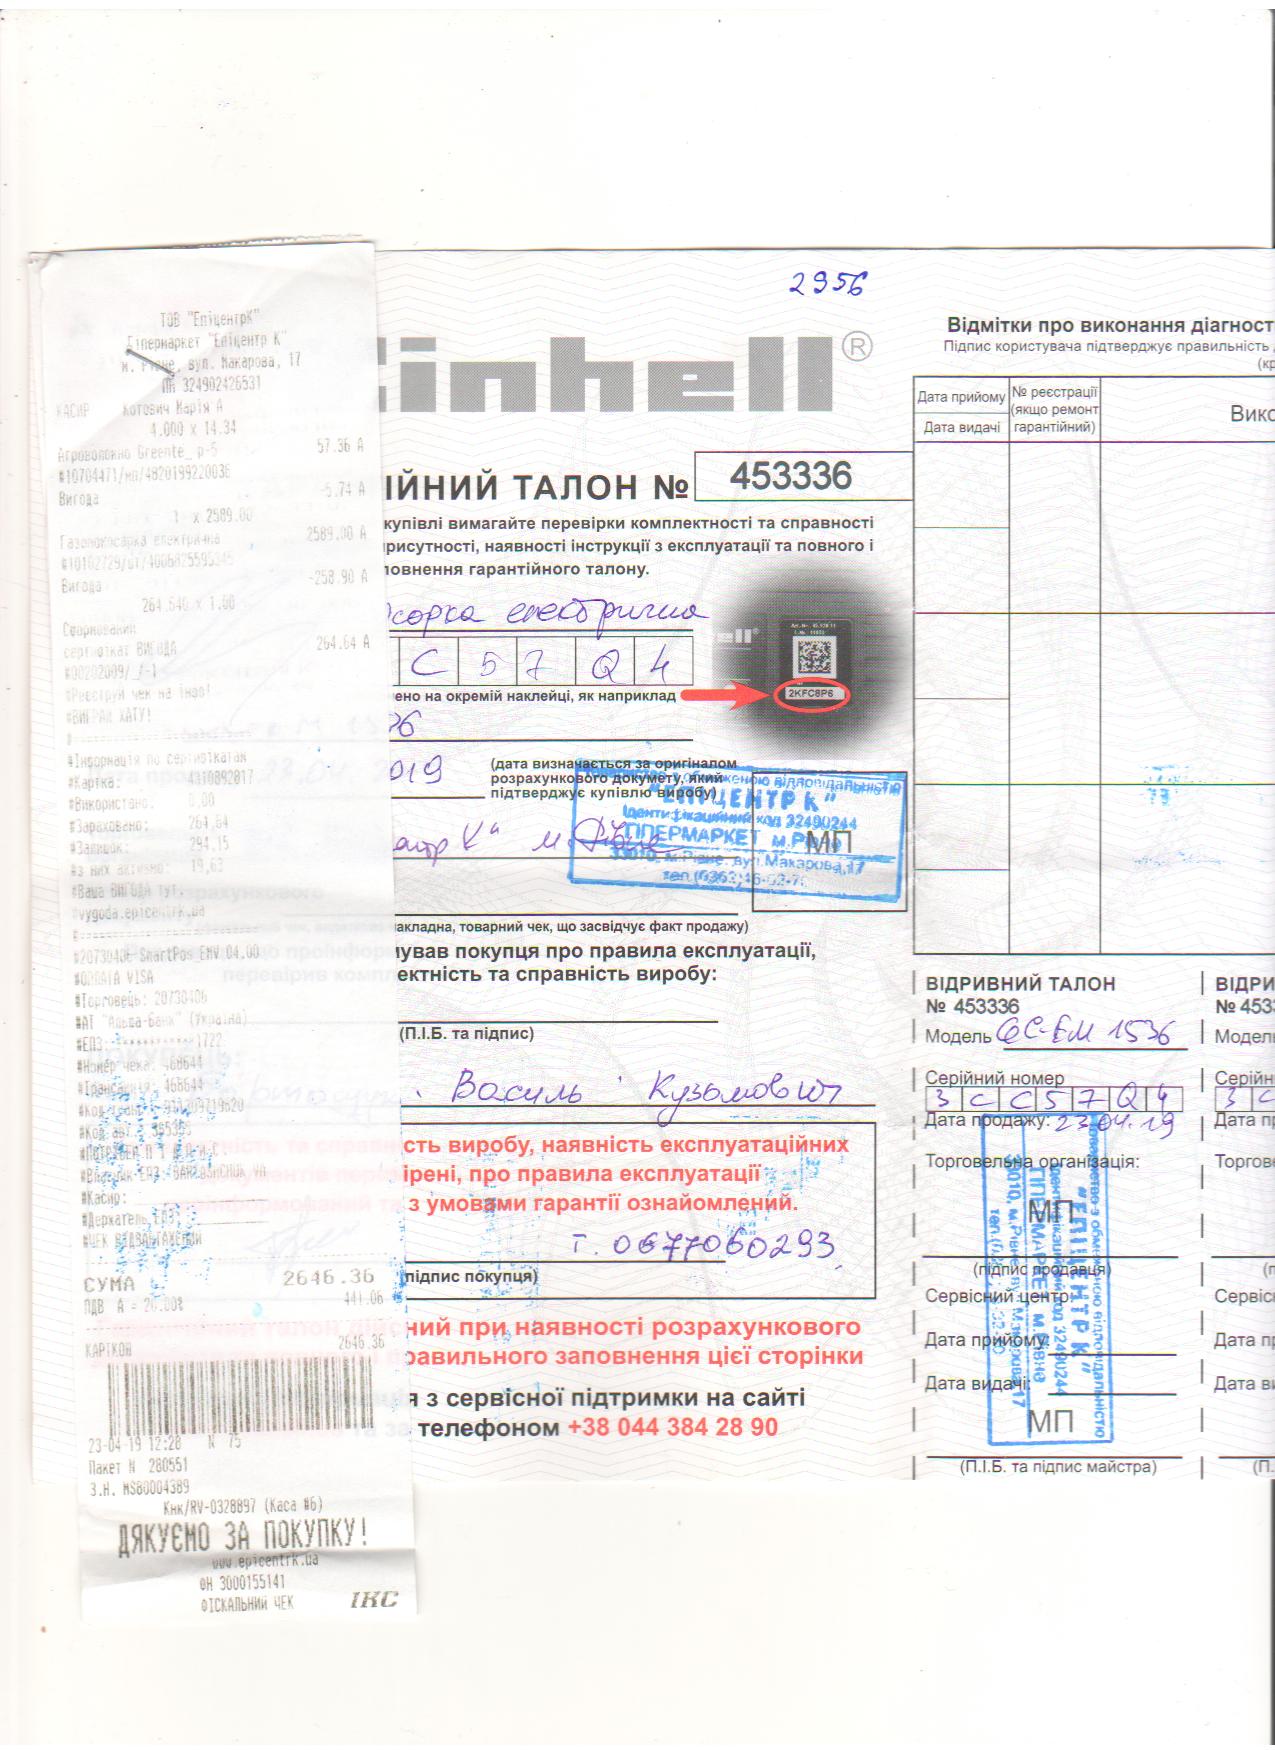 2956
ТОВ "ЕпіцентрК"
Гіпермаркет "Епіцентр К"
м. Рівне, вул. Макарова, 17
ПН 324902426531
КАСИР Котович Марія А
4.000 x 14.34
Агроволокно Greente_ р-5 57.36 А
#10704471/мп/4820199220036
Вигода -5.74 А
1 x 2589.00
Газонокосарка електрична 2589.00 А
#10102729/шт/4006825595345
Вигода -258.90 А
264.640 x 1.00
Сформований
сертифікат ВИГОДА 264.64 А
#00202009/_/-1
#Реєструй чек на
#ВИГРАЙ ХАТУ!
#Інформація по сертифікатам
#Картка: 4310892017
#Використано: 0,00
#Зараховано: 264,64
#Залишок: 294,15
#з них активно: 19,63
#Ваша ВИГОДА тут:
#vygoda.epicentrk.ua
#2073040E SmartPos EMV 04.00
#ОПЛАТА VISA
#Торговець: 20730406
#АТ "Альфа-Банк" (Україна)
#ЕПЗ: 1722
#Номер чека: 468644
#Трансакція: 468644
#Касир:
#Держатель ЕПЗ:
СУМА 2646.36
ПДВ А = 20.00% 441.06
КАРТКОЮ 2646.36
23-04-19 12:28 N 75
Пакет N 280551
З.Н. MS80004389
Кнк/RV-0328897 (Каса #6)
ДЯКУЄМО ЗА ПОКУПКУ!
www.epicentrk.ua
ФН 3000155141
ФІСКАЛЬНИЙ ЧЕК ІКС
inhell ®
ІЙНИЙ ТАЛОН № 453336
купівлі вимагайте перевірки комплектності та справності
присутності, наявності інструкції з експлуатації та повного і
повнення гарантійного талону.
осарка електрична
C 5 7 Q 4
ено на окремій наклейці, як наприклад
2KFC8P6
36
019
(дата визначається за оригіналом
розрахункового докумету, який
підтверджує купівлю виробу)
Товариство з обмеженою відповідальністю
"ЕПІЦЕНТР К"
Ідентифікаційний код 32490244
ГІПЕРМАРКЕТ м.Рівне
33010, м.Рівне, вул.Макарова,17
МП
нтр К" м. Рівне
накладна, товарний чек, що засвідчує факт продажу)
мував покупця про правила експлуатації,
лектність та справність виробу:
(П.І.Б. та підпис)
Василь Кузьмович
сть виробу, наявність експлуатаційних
ірені, про правила експлуатації
з умовами гарантії ознайомлений.
т. 0677060293
підпис покупця)
ний при наявності розрахункового
равильного заповнення цієї сторінки
я з сервісної підтримки на сайті
телефоном +38 044 384 28 90
Відмітки про виконання діагност
Підпис користувача підтверджує правильність
(кр
Дата прийому
Дата видачі
№ реєстрації
(якщо ремонт
гарантійний)
Вико
ВІДРИВНИЙ ТАЛОН
№ 453336
Модель GC-EM 1536
Серійний номер
3 C C 5 7 Q 4
Дата продажу: 23.04.19
Торговельна організація:
МП
(підпис продавця)
Сервісний центр:
Дата прийому:
Дата видачі:
МП
(П.І.Б. та підпис майстра)
Товариство з обмеженою відповідальністю
"ЕПІЦЕНТР К"
Ідентифікаційний код 32490244
ГІПЕРМАРКЕТ м.Рівне
33010, м.Рівне, вул.Макарова,17
ВІДРИ
№ 453
Модель
Серійн
3 C
Дата пр
Торгове
(п
Сервіс
Дата пр
Дата ви
(П.